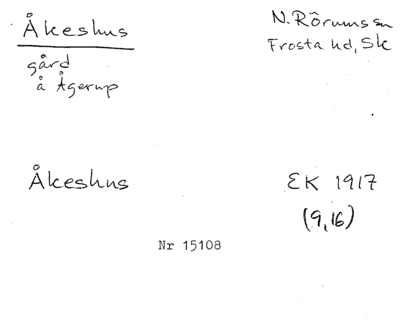 Åkeshus
N. Rörums sn
Frosta hd, Sk
gård
å Ågerup
Åkeshus
EK 1917
(9,16)
Nr 15108